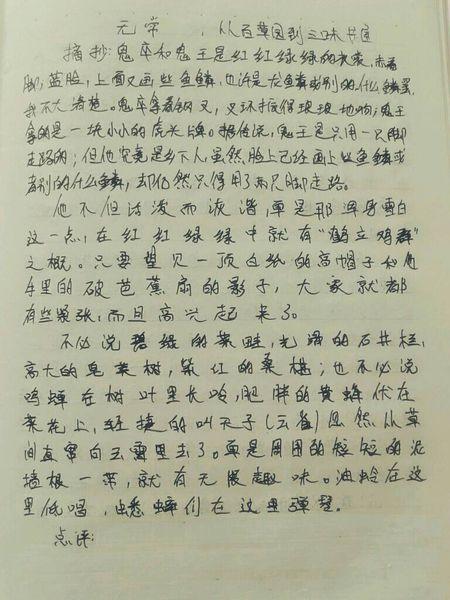 无常 ,从百草园到三味书屋
摘抄:鬼卒和鬼王是红红绿绿的衣裳,赤着
脚,蓝脸,上面又画些鱼鳞,也许是龙鳞或别的什么鳞罢,
我不大清楚。鬼卒拿着钢叉,叉环振得琅琅地响;鬼王
拿的是一块小小的虎头牌。据传说,鬼王是只用一只脚
走路的;但他究竟是乡下人,虽然脸上已经画上些鱼鳞或
者别的什么鳞,却仍然只得用了两只脚走路。
他不但活泼而诙谐,单是那浑身雪白
这一点,在红红绿绿中就有“鹤立鸡群”
之概。只要望见一顶白纸的高帽子和他
手里的破芭蕉扇的影子,大家就都
有些紧张,而且高兴起来了。
不必说碧绿的菜畦,光滑的石井栏,
高大的皂荚树,紫红的桑椹;也不必说
鸣蝉在树叶里长吟,肥胖的黄蜂伏在
菜花上,轻捷的叫天子(云雀)忽然从草
间直窜向云霄里去了。单是周围的短短的泥
墙根一带,就有无限趣味。油蛉在这
里低唱,蟋蟀们在这里弹琴。
点评: